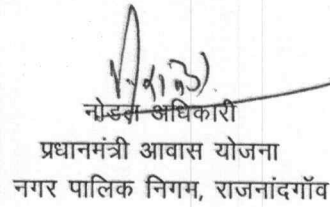 नोडल अधिकारी
प्रधानमंत्री आवास योजना
नगर पालिक निगम, राजनांदगॉव